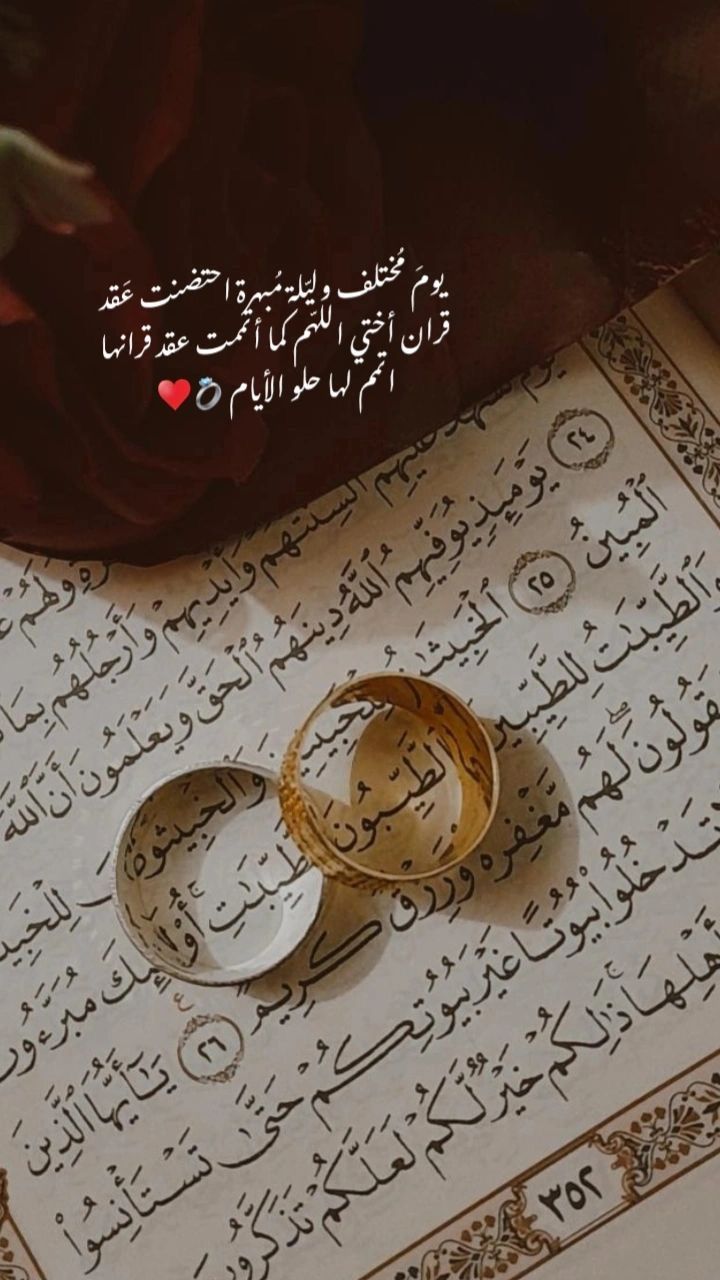 يومَ مُختلف وليّلة مُبهرة احتضنت عَقد
قران أختي اللهّم كما أتممت عقد قرانها
اتمم لها حلو الأيام 💍♥️
يَوْمَ تَشْهَدُ عَلَيْهِمْ أَلْسِنَتُهُمْ وَأَيْدِيهِمْ وَأَرْجُلُهُم بِمَا
٢٤ يَوْمَئِذٍ يُوَفِّيهِمُ ٱللَّهُ دِينَهُمُ ٱلْحَقَّ وَيَعْلَمُونَ أَنَّ ٱللَّهَ
ٱلْمُبِينُ ٢٥ ٱلْخَبِيثَٰتُ لِلْخَبِيثِينَ وَٱلْخَبِيثُونَ لِلْخَبِيثَٰتِ
وَٱلطَّيِّبَٰتُ لِلطَّيِّبِينَ وَٱلطَّيِّبُونَ لِلطَّيِّبَٰتِ ۚ أُو۟لَٰٓئِكَ مُبَرَّءُونَ
يَقُولُونَ ۖ لَهُم مَّغْفِرَةٌ وَرِزْقٌ كَرِيمٌ ٢٦ يَٰٓأَيُّهَا ٱلَّذِينَ
تَدْخُلُوا۟ بُيُوتًا غَيْرَ بُيُوتِكُمْ حَتَّىٰ تَسْتَأْنِسُوا۟
أَهْلِهَا ۚ ذَٰلِكُمْ خَيْرٌ لَّكُمْ لَعَلَّكُمْ تَذَكَّرُونَ
٣٥٢